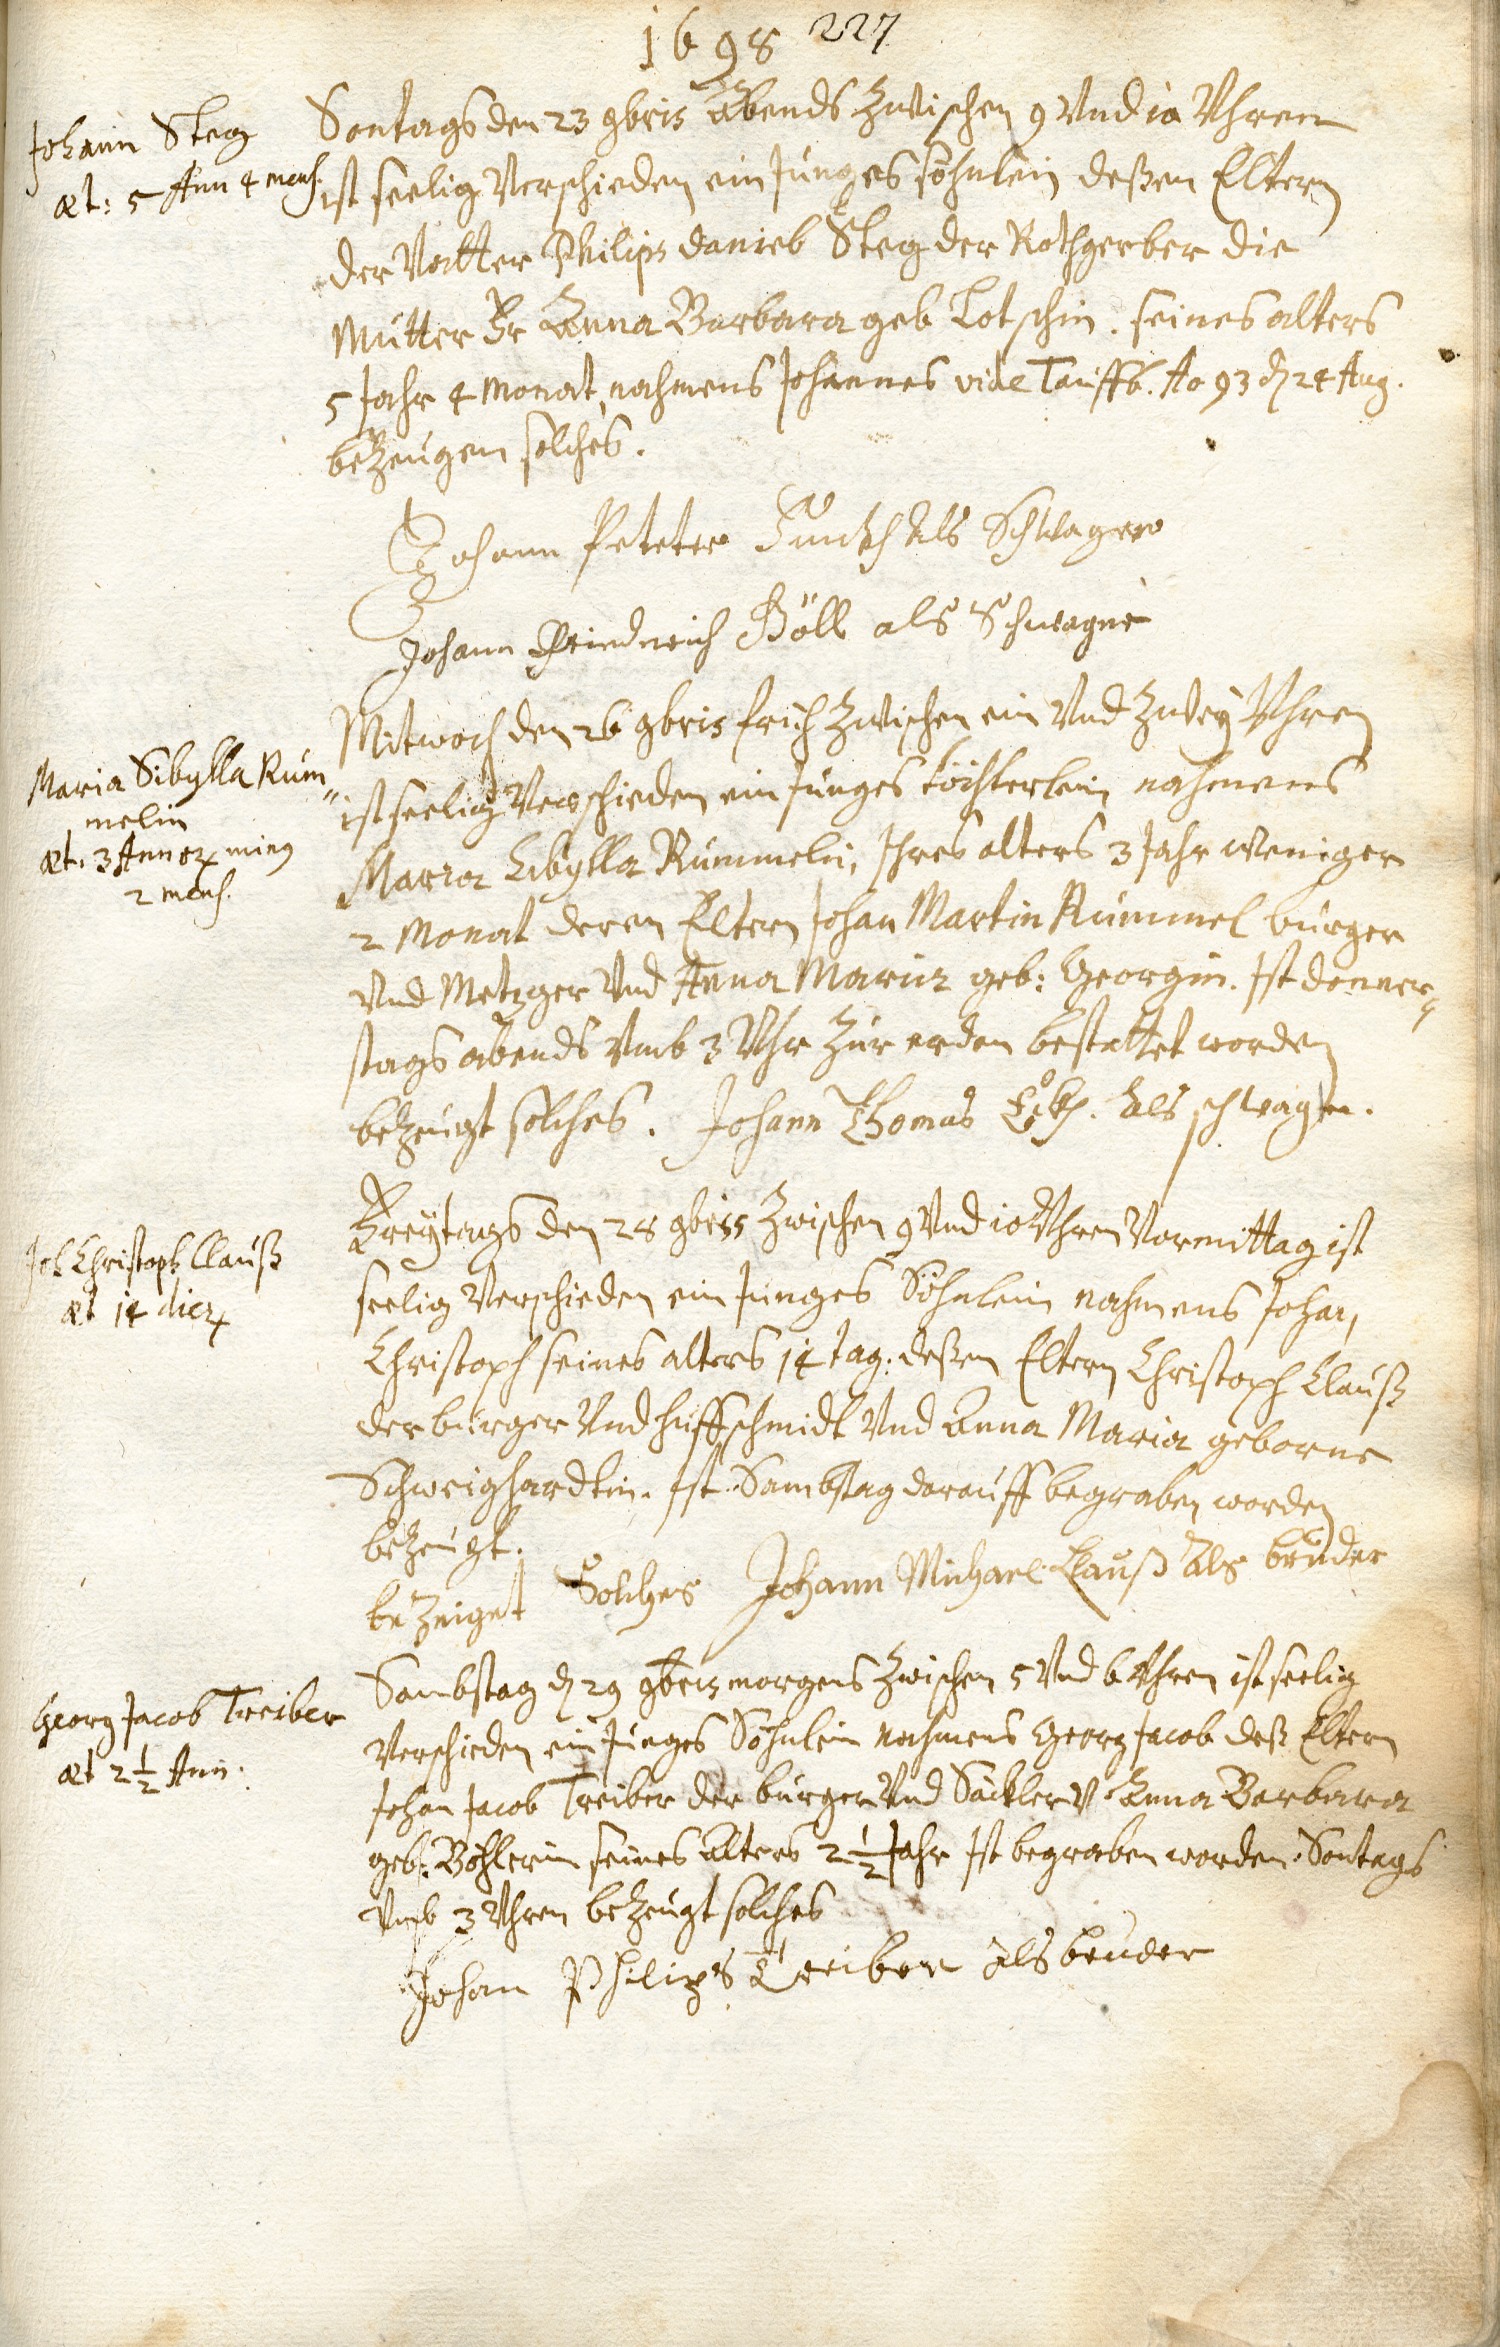 1698 227
Johann Steg
æt: 5 Ann 4 mens.
Sontags den 23 9bris abends zwischen 9 Vnd 10 Vhren
ist seelig Verschieden ein Junges söhnlein deßen Eltern
der Vatter Philips Daniel Steg der Rothgerber die
Mutter Fr Anna Barbara geb Lotschin. seines alters
5 Jahr 4 Monat, nahmens Johannes vide Tauffb. Ao 93 d 24 Aug.
bezeugen solches.
Johann Peteter Funckh Als Schwager
Johann Friedrich Böll als Schwager
Maria Sibylla Rum„
melin
æt. 3 Annor. ming
2 mens.
Mitwoch den 26 9bris früh zwischen ein Vnd zwey Vhren
ist seelig Verschieden ein Junges töchterlein nahmens
Maria Sibylla Rummelin, Ihres alters 3 Jahr weniger
2 Monat deren Eltern Johan Martin Rummel burger
Vnd Metzger Vnd Anna Maria geb: Georgin. Ist donner„
stags abends Vmb 3 Vhr zur erden bestattet worden
bezeugt solches. Johann Thomas als schwager.
Joh Christoph Clauß
æt 14 dier.
Freytags den 28 9bris zwischen 9 Vnd 10 Vhren Vormittag ist
seelig Verschieden ein Junges Söhnlein nahmens Johan,
Christoph seines alters 14 tag. deßen Eltern Christoph Clauß
der burger Vnd huffschmidt Vnd Anna Maria geborne
Schweighardtin. Ist Sambstag darauff begraben worden
bezeugt.
bezeiget Solches Johann Michael Clauß Als bruder
Georg Jacob Treiber
æt 2 1/2 Ann.
Sambstag d 29 9bris morgens zwischen 5 Vnd 6 Vhren ist seelig
Verschieden ein Junges Söhnlein nahmens Georg Jacob deß Eltern
Johan Jacob Treiber der burger Vnd Säckler V. Anna Barbara
geb: Böhlerin seines alters 2 1/2 Jahr Ist begraben worden. Sontags
Vmb 3 Vhren bezeugt solches
Johan Philips Treiber als bruder